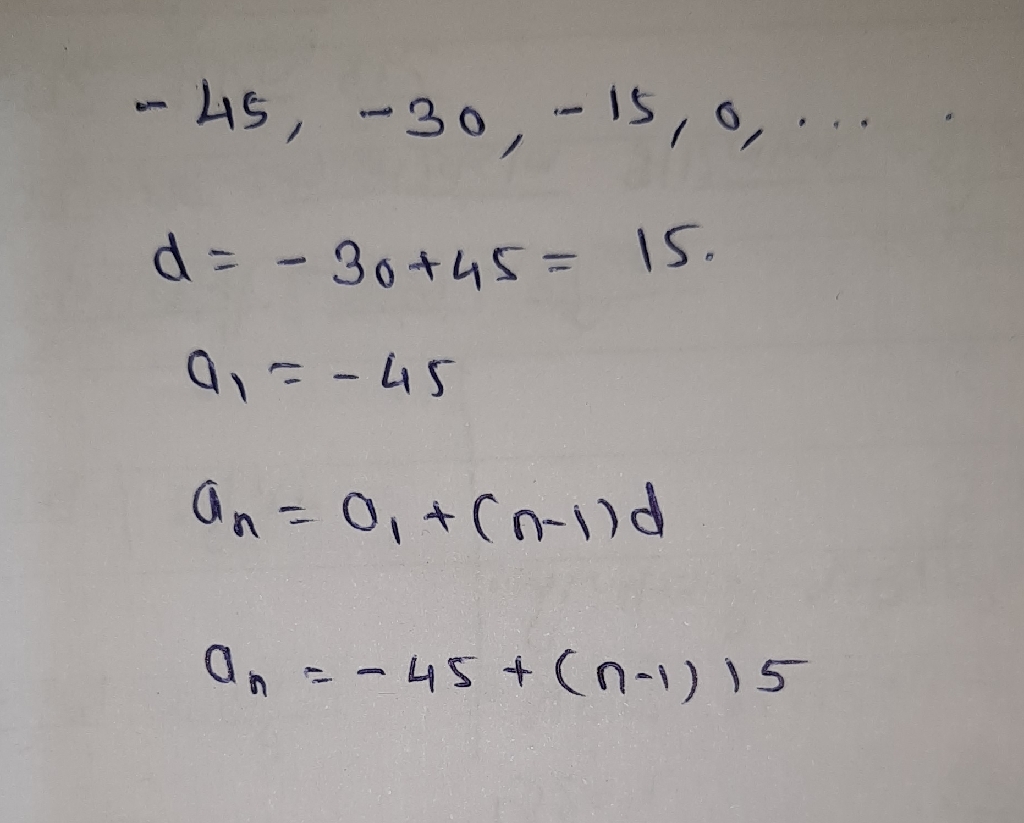 - 45, -30, -15, 0, ... .
d = - 30 + 45 = 15.
a₁ = - 45
aₙ = a₁ + (n-1)d
aₙ = - 45 + (n-1) 15